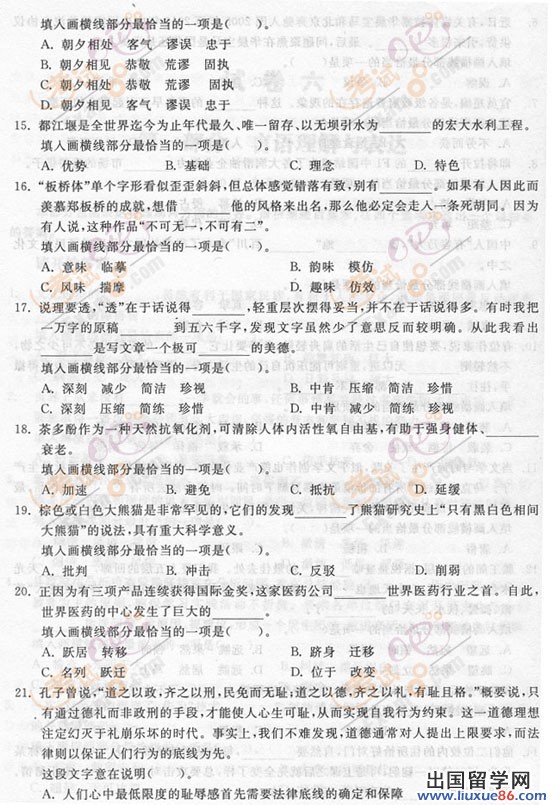 填入画横线部分最恰当的一项是(　　)。
A. 朝夕相处　客气　谬误　忠于
B. 朝夕相见　恭敬　荒谬　固执
C. 朝夕相处　恭敬　荒谬　固执
D. 朝夕相见　客气　谬误　忠于
15. 都江堰是全世界迄今为止年代最久、唯一留存、以无坝引水为______的宏大水利工程。
填入画横线部分最恰当的一项是(　　)。
A. 优势　B. 基础　C. 理念　D. 特色
16. “板桥体”单个字形看似歪歪斜斜,但总体感觉错落有致,别有______。如果有人因此而
羡慕郑板桥的成就,想借______他的风格来出名,那么他必定会走人一条死胡同。因为
有人说,这种作品“不可无一,不可有二”。
填入画横线部分最恰当的一项是(　　)。
A. 意味　临摹　B. 韵味　模仿
C. 风味　揣摩　D. 趣味　仿效
17. 说理要透,“透”在于话说得______,轻重层次摆得妥当,并不在于话说得多。有时我把
一万字的原稿______到五六千字,发现文字虽然少了意思反而较明确。从此我看出
______是写文章一个极可______的美德。
填入画横线部分最恰当的一项是(　　)。
A. 深刻　减少　简洁　珍视　B. 中肯　压缩　简洁　珍惜
C. 深刻　压缩　简练　珍惜　D. 中肯　减少　简练　珍视
18. 茶多酚作为一种天然抗氧化剂,可清除人体内活性氧自由基,有助于强身健体、______
衰老。
填入画横线部分最恰当的一项是(　　)。
A. 加速　B. 避免　C. 抵抗　D. 延缓
19. 棕色或白色大熊猫是非常罕见的,它们的发现______了熊猫研究史上“只有黑白色相间
大熊猫”的说法,具有重大科学意义。
填入画横线部分最恰当的一项是(　　)。
A. 批判　B. 冲击　C. 反驳　D. 削弱
20. 正因为有三项产品连续获得国际金奖,这家医药公司______世界医药行业之首。自此,
世界医药的中心发生了巨大的______。
填入画横线部分最恰当的一项是(　　)。
A. 跃居　转移　B. 跻身　迁移
C. 名列　跃迁　D. 位于　改变
21. 孔子曾说,“道之以政,齐之以刑,民免而无耻;道之以德,齐之以礼,有耻且格。”概要说,只
有通过德礼而非政刑的手段,才能使人心生可耻,从而实现自我行为约束。这一道德理想
注定幻灭于礼崩乐坏的时代。事实上,我们不难发现,道德通常对人提出上限要求,而法
律则以保证人们行为的底线为先。
这段文字意在说明(　　)。
A. 人们心中最低限度的耻辱感首先需要法律底线的确定和保障
出国留学网
www.liuxue86.com